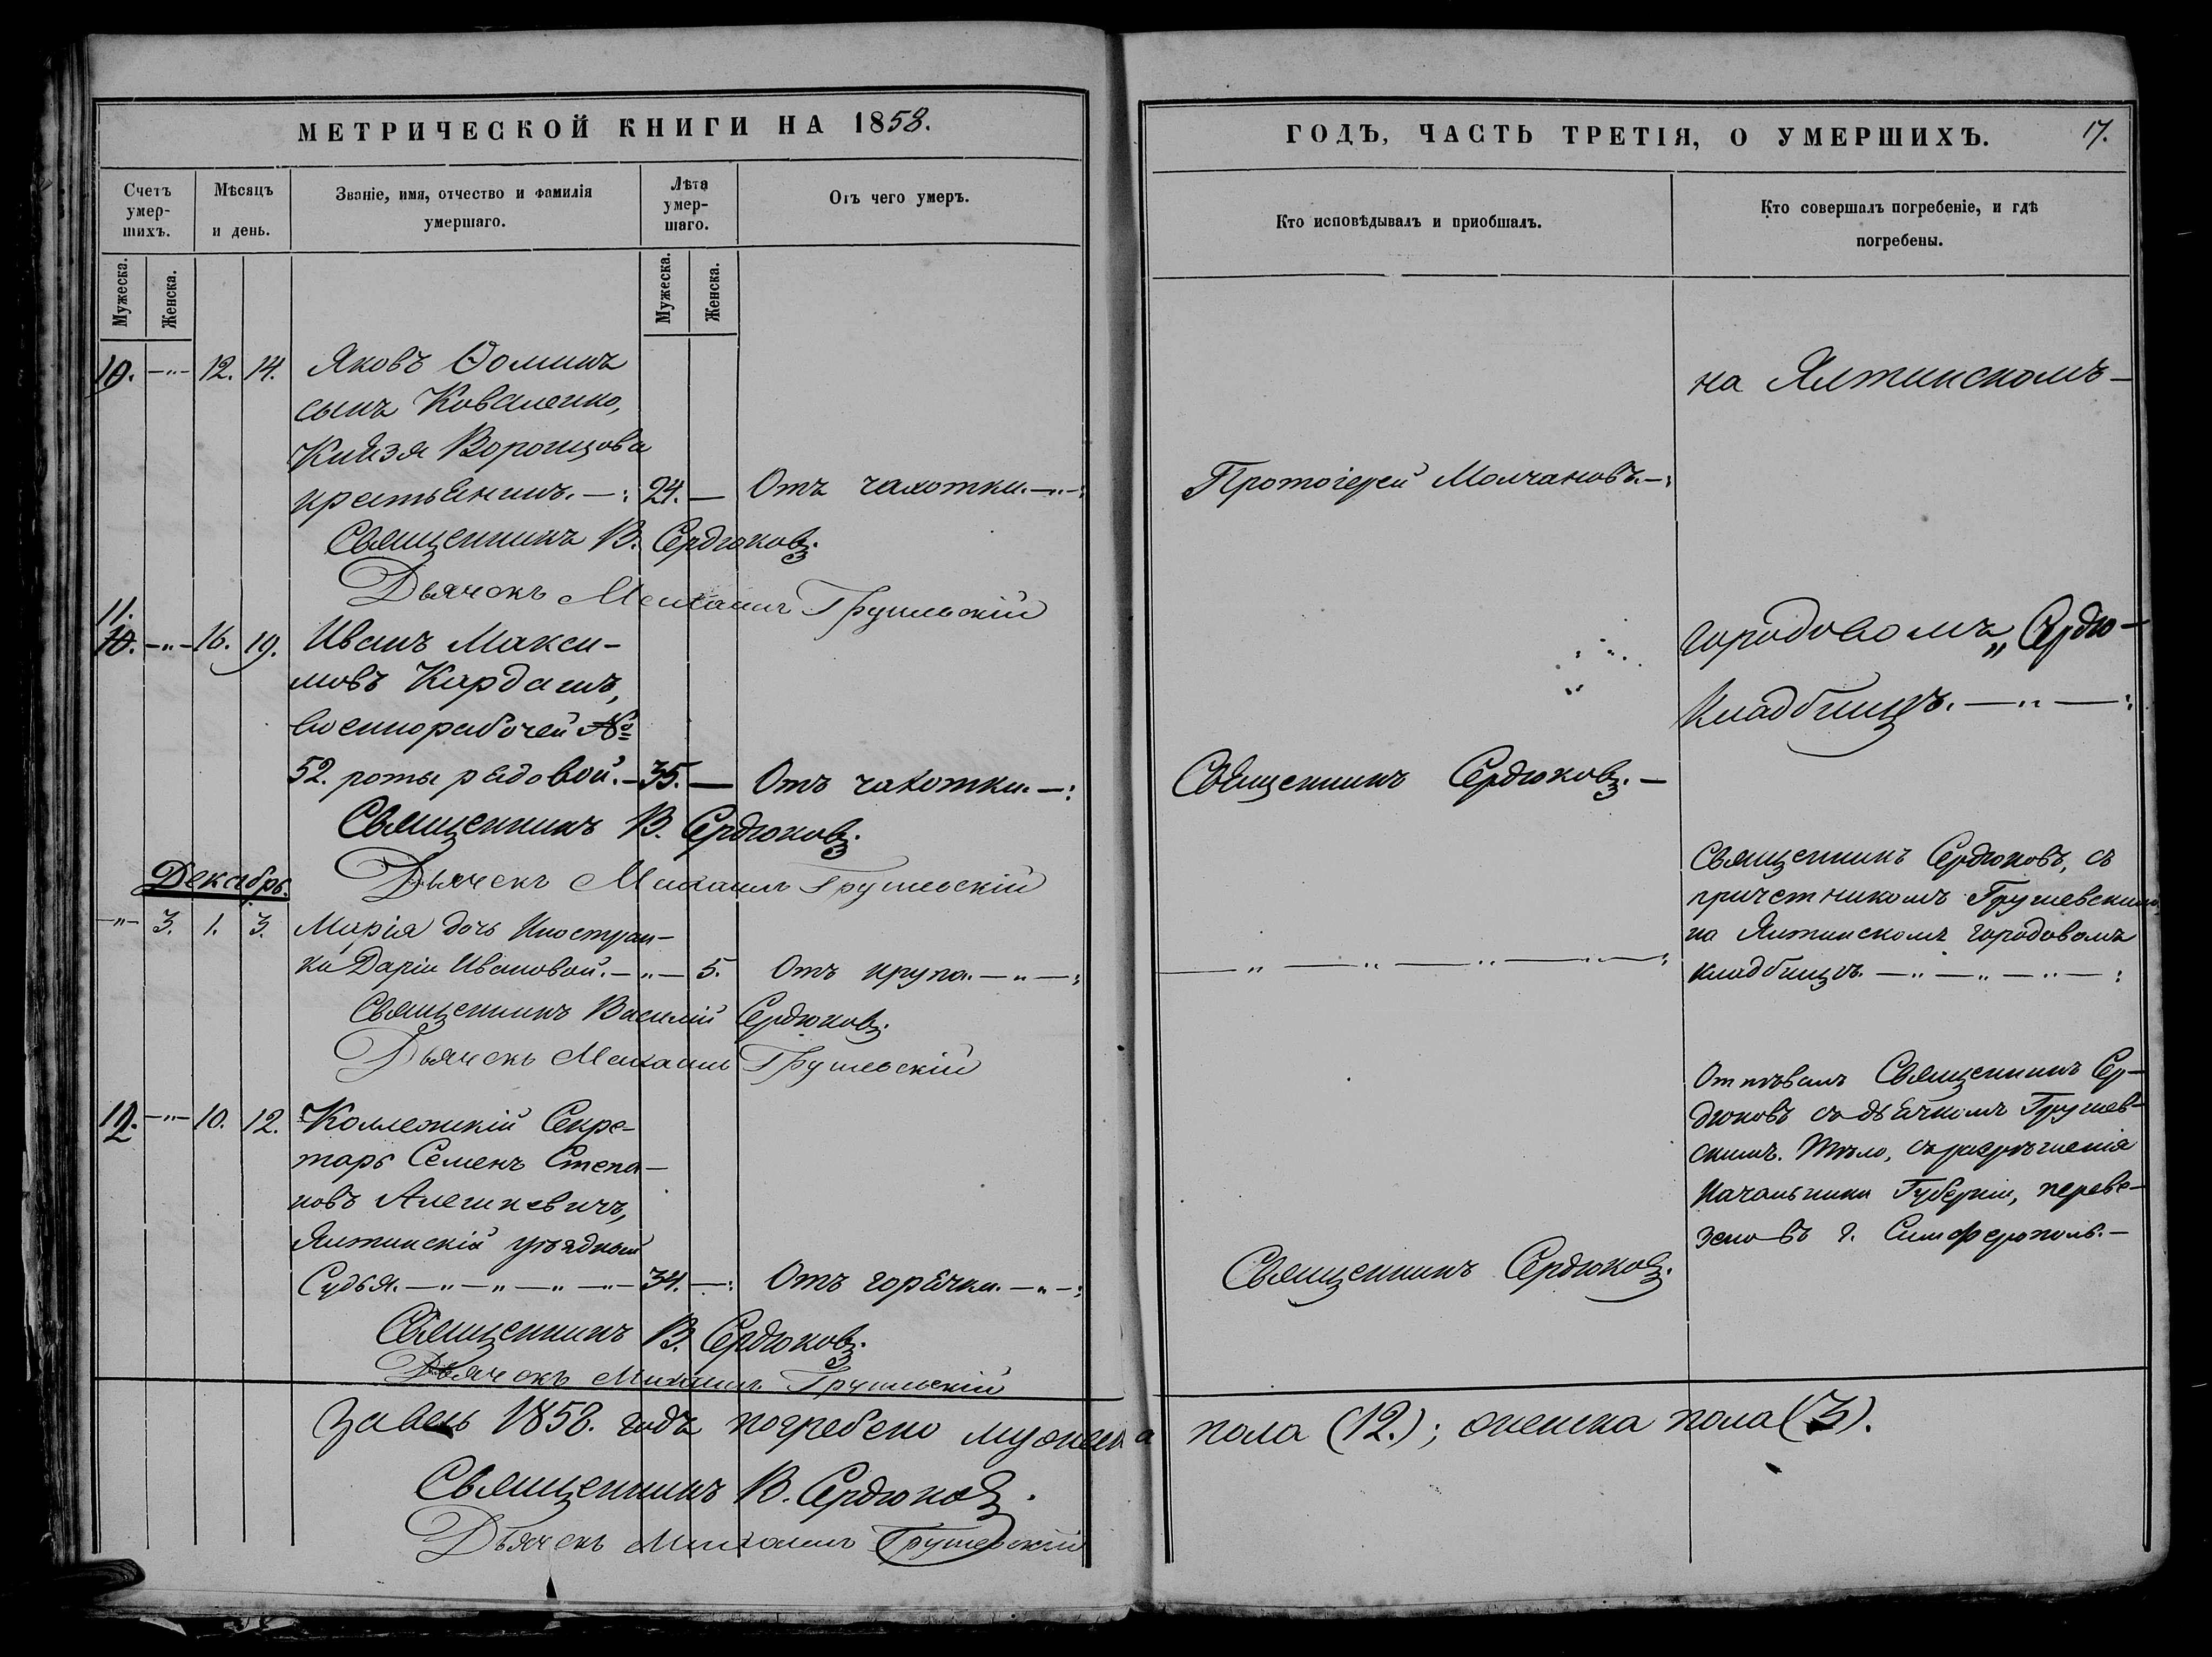 МЕТРИЧЕСКОЙ КНИГИ НА 1858.
Счетъ умер-шихъ.
Мѣсяцъ и день.
Званіе, имя, отчество и фамилія умершаго.
Лѣта умер-шаго.
Отъ чего умеръ.
Мужеска.
Женска.
Мужеска.
Женска.
10. —"— 12. 14. Яковъ Ѳоминъ
сынъ Коваленко,
Князя Воронцова
крестьянинъ. —: 24. — Отъ чахотки. —"—:
Священникъ В. Сердюковъ.
Дьячокъ Михаилъ Грушевскій
11.
10. —"— 16. 19. Иванъ Макси-
мовъ Кардашъ,
военнорабочей №
52. роты рядовой. — 35. — Отъ чахотки. —:
Священникъ В. Сердюковъ.
Дьячекъ Михаилъ Грушевскій
Декабрь.
—"— 3. 1. 3. Марія дочь Иностран-
ки Даріи Ивановой. —"— 5. Отъ крупа. —"—:
Священникъ Василій Сердюковъ.
Дьячекъ Михаилъ Грушевскій
12. —"— 10. 12. Коллежскій Секре-
тарь Семенъ Степа-
новъ Алешкевичъ,
Ялтинскій уѣздный
Судья. —"—"—"— 34. —: Отъ горячки. —"—:
Священникъ В. Сердюковъ.
Дьячокъ Михаилъ Грушевскій
За весь 1858. годъ погребено мужеска
Священникъ В. Сердюковъ.
Дьячекъ Михаилъ Грушевскій
ГОДЪ, ЧАСТЬ ТРЕТІЯ, О УМЕРШИХЪ. 17.
Кто исповѣдывалъ и приобшалъ.
Кто совершалъ погребеніе, и гдѣ погребены.
на Ялтинскомъ —
Протоіерей Молчановъ. —:
городовомъ „Сердю-
Кладбищѣ. —"—:
Священникъ Сердюковъ. —
Священникъ Сердюковъ, съ
причетникомъ Грушевскимъ,
на Ялтинскомъ городовомъ
—"—"—"—"—:
кладбищѣ. —"—"—"—:
Отпѣвалъ Священникъ Сер-
дюковъ съ дьячкомъ Грушев-
скимъ. Тѣло, съ разрѣшенія
Начальника Губерніи, переве-
зено въ г. Симферополь. —
Священникъ Сердюковъ.
пола (12.); женска пола (3).